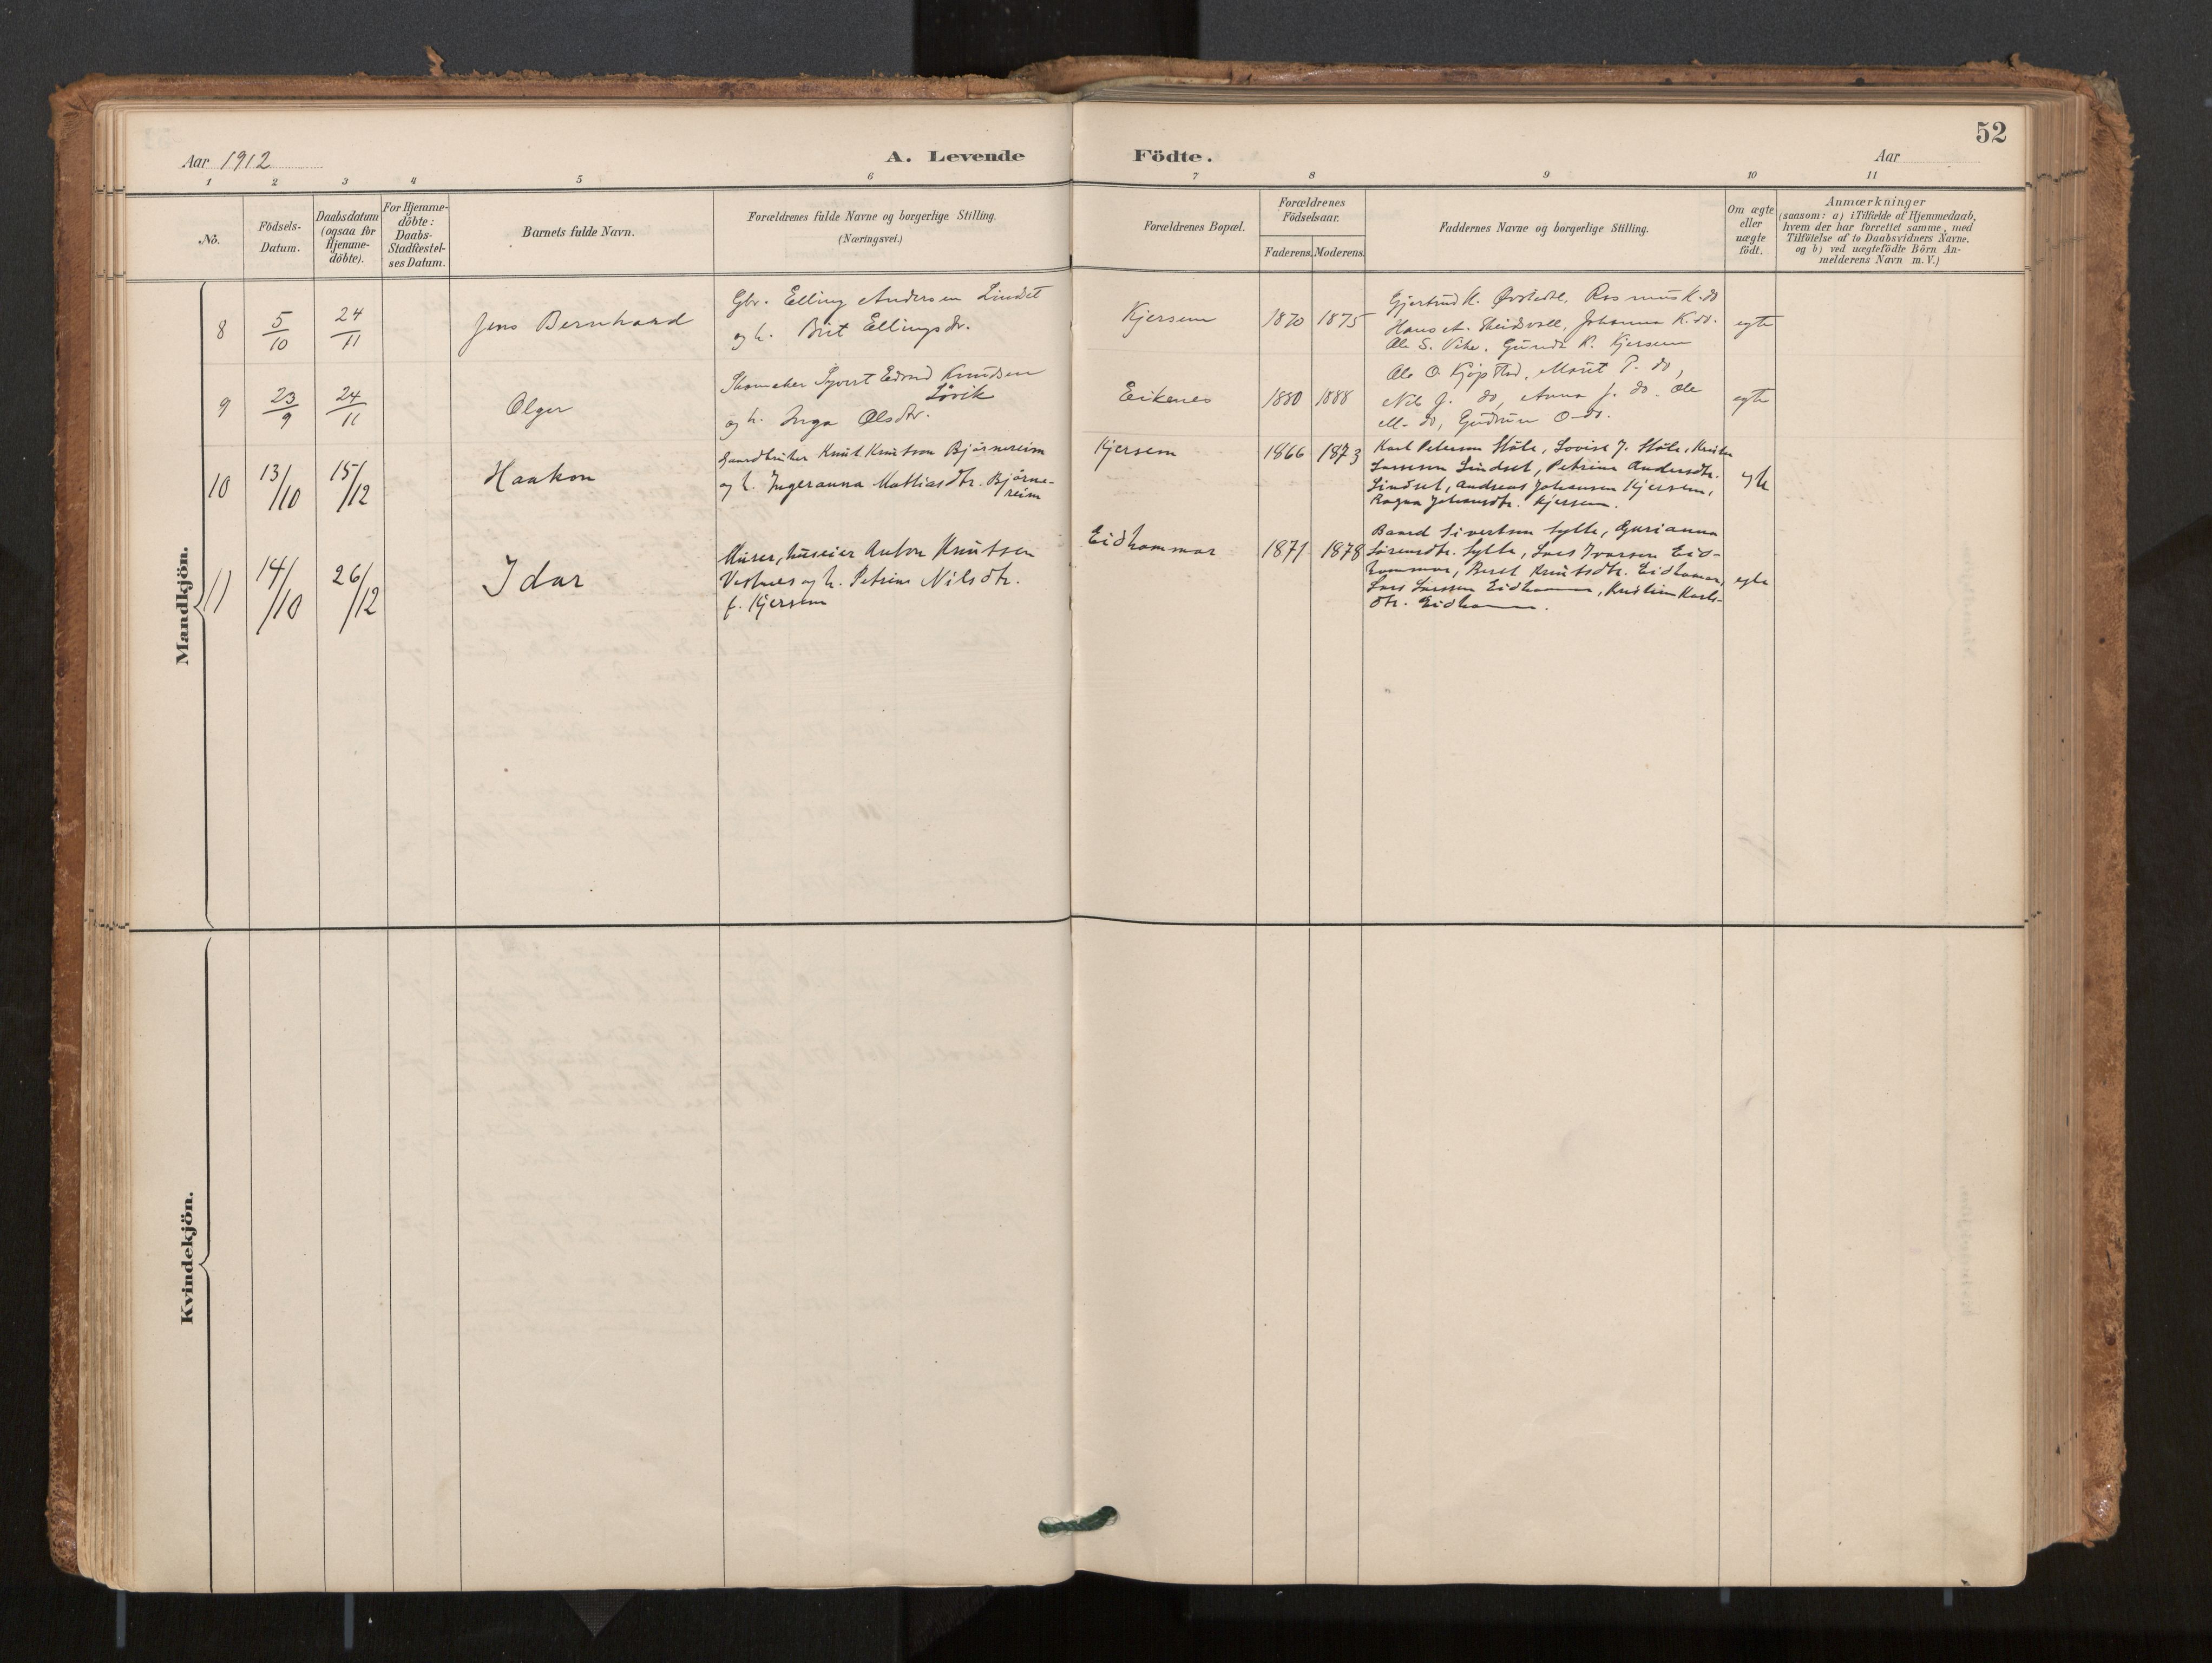 52
Aar 1912
A. Levende Födte.
Aar
1 2 3 4 5 6 7 8 9 10 11
No.
Födsels-
Datum.
Daabsdatum
(ogsaa for
Hjemme-
döbte).
For Hjemme-
döbte:
Daabs-
Stadfæstel-
ses Datum.
Barnets fulde Navn.
Forældrenes fulde Navne og borgerlige Stilling.
(Næringsvei.)
Forældrenes Bopæl.
Forældrenes
Födselsaar.
Faderens. Moderens.
Faddernes Navne og borgerlige Stilling.
Om ægte
eller
uægte
födt.
Anmærkninger
(saasom: a) i Tilfælde af Hjemmedaab,
hvem der har forrettet samme, med
Tilföielse af to Daabsvidners Navne.
og b) ved uægtefödte Börn An-
melderens Navn m. V.)
Mandkjön.
8
5/10
24/11
Jens Bernhard
Gbr. Elling Andersen Lindset
og h. Brit Ellingsdr.
Kjersem
1870 1875
Gjertrud K. Rasmus K. do
Hans A. Johanna K. do.
Ole S. Vike, Gunda K. Kjersem
egte
9
23/9
24/11
Olger
Skomaker Syvert Edvard Knudsen
Løvik
og h. Inga Olsdtr.
Eikenes
1880 1888
Ole O. Kjøpstad, Marit P. do,
Nils J. do, Anna J. do. Ole
M. do, Gudrun O. do.
egte
10
13/10
15/12
Haakon
Gaardbruker Knut Knutson Bjørnereim
og h. Ingeranna Mathiasdtr. Bjørne-
reim
Kjersem
1866 1873
Karl Petersen Støle, Lovise J. Støle, Kristen
Larssen Lindset, Petrine Andersdtr.
Lindset, Andreas Johansen Kjersem,
Ragna Johansdtr. Kjersem.
egte
11
14/10
26/12
Idar
Murer, huseier Anton Knutsen
Vestnes og h. Petrine Nilsdtr.
f. Kjersem
Eidhammar
1871 1878
Baard Sivertsen Sylte, Gurianna
Sørensdtr. Sylte, Lars Ivarsen Eid-
hammar, Beret Knutsdtr. Eidhammar,
Lars Larssen Eidhammar, Kristine Karls-
dtr. Eidhammar.
egte
Kvindekjön.